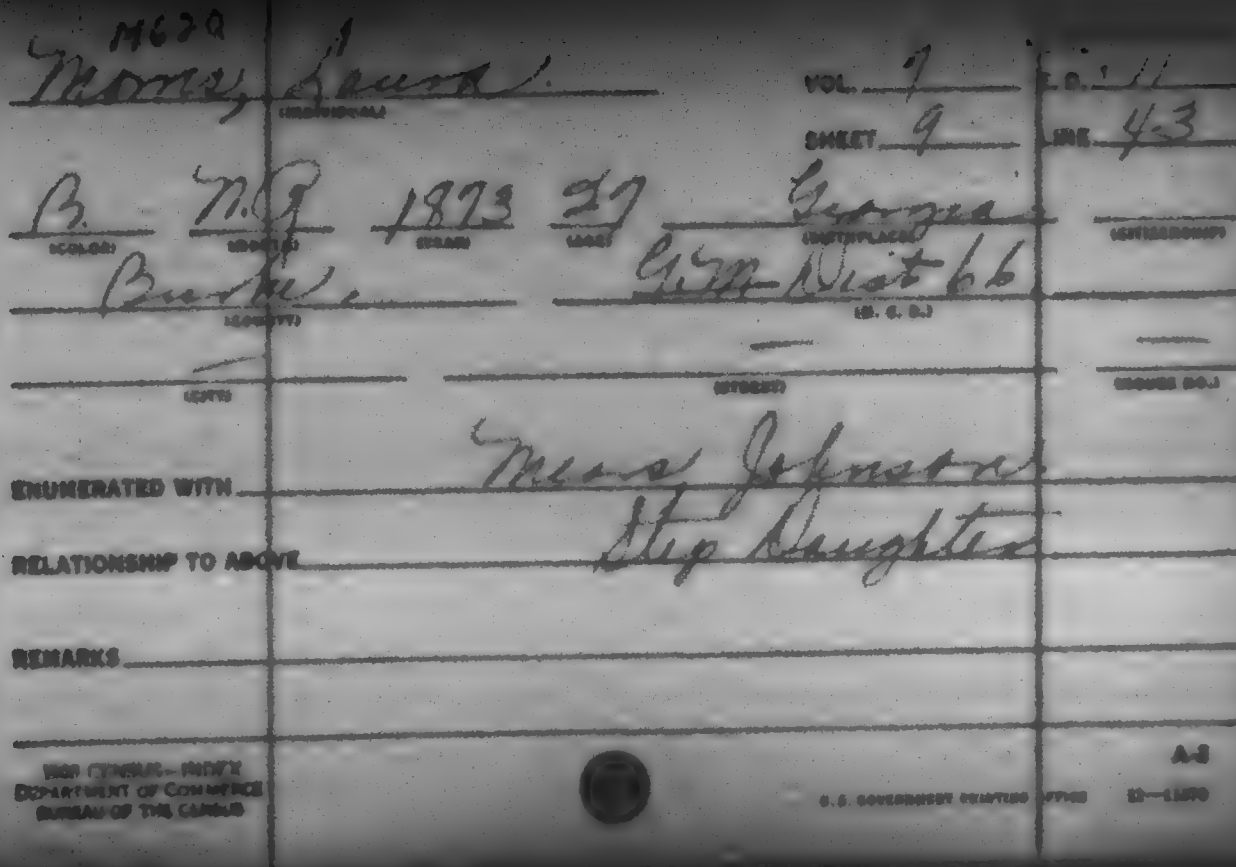 M620
Morris, Laura.
(INDIVIDUAL)
VOL. 7 E. D. 11
SHEET 9 LINE 43
B. N.R 1873 27 Georgia
(COLOR) (MONTH) (YEAR) (AGE) (BIRTHPLACE) (CITIZENSHIP)
Burke, G.M. Dist 66
(COUNTY) (M. C. D.)
— — —
(CITY) (STREET) (HOUSE NO.)
ENUMERATED WITH Johnson
RELATIONSHIP TO ABOVE Step Daughter
REMARKS
1900 CENSUS—INDEX
DEPARTMENT OF COMMERCE
BUREAU OF THE CENSUS
A-3
U.S. GOVERNMENT PRINTING OFFICE